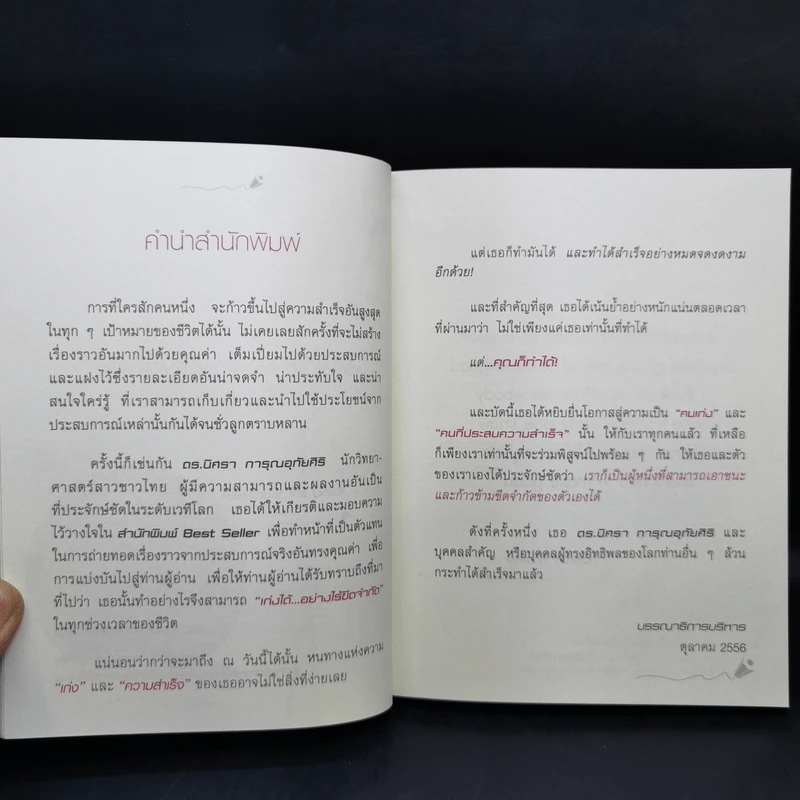 คำนำสำนักพิมพ์
การที่ใครสักคนหนึ่ง จะก้าวขึ้นไปสู่ความสำเร็จอันสูงสุด
ในทุก ๆ เป้าหมายของชีวิตได้นั้น ไม่เคยเลยสักครั้งที่จะไม่สร้าง
เรื่องราวอันมากไปด้วยคุณค่า เต็มเปี่ยมไปด้วยประสบการณ์
และแฝงไว้ซึ่งรายละเอียดอันน่าจดจำ น่าประทับใจ และน่า
สนใจใคร่รู้ ที่เราสามารถเก็บเกี่ยวและนำไปใช้ประโยชน์จาก
ประสบการณ์เหล่านั้นกันได้จนชั่วลูกตราบหลาน
ครั้งนี้ก็เช่นกัน ดร.นิศรา การุณอุทัยศิริ นักวิทยา-
ศาสตร์สาวชาวไทย ผู้มีความสามารถและผลงานอันเป็น
ที่ประจักษ์ชัดในระดับเวทีโลก เธอได้ให้เกียรติและมอบความ
ไว้วางใจใน สำนักพิมพ์ Best Seller เพื่อทำหน้าที่เป็นตัวแทน
ในการถ่ายทอดเรื่องราวจากประสบการณ์จริงอันทรงคุณค่า เพื่อ
การแบ่งบันไปสู่ท่านผู้อ่าน เพื่อให้ท่านผู้อ่านได้รับทราบถึงที่มา
ที่ไปว่า เธอนั้นทำอย่างไรจึงสามารถ “เก่งได้...อย่างไร้ขีดจำกัด”
ในทุกช่วงเวลาของชีวิต
แน่นอนว่ากว่าจะมาถึง ณ วันนี้ได้นั้น หนทางแห่งความ
“เก่ง” และ “ความสำเร็จ” ของเธออาจไม่ใช่สิ่งที่ง่ายเลย
แต่เธอก็ทำมันได้ และทำได้สำเร็จอย่างหมดจดงดงาม
อีกด้วย!
และที่สำคัญที่สุด เธอได้เน้นย้ำอย่างหนักแน่นตลอดเวลา
ที่ผ่านมาว่า ไม่ใช่เพียงแค่เธอเท่านั้นที่ทำได้
แต่...คุณก็ทำได้!
และบัดนี้เธอได้หยิบยื่นโอกาสสู่ความเป็น “คนเก่ง” และ
“คนที่ประสบความสำเร็จ” นั้น ให้กับเราทุกคนแล้ว ที่เหลือ
ก็เพียงเราเท่านั้นที่จะร่วมพิสูจน์ไปพร้อม ๆ กัน ให้เธอและตัว
ของเราเองได้ประจักษ์ชัดว่า เราก็เป็นผู้หนึ่งที่สามารถเอาชนะ
และก้าวข้ามขีดจำกัดของตัวเองได้
ดังที่ครั้งหนึ่ง เธอ ดร.นิศรา การุณอุทัยศิริ และ
บุคคลสำคัญ หรือบุคคลผู้ทรงอิทธิพลของโลกท่านอื่น ๆ ล้วน
กระทำได้สำเร็จมาแล้ว
บรรณาธิการบริหาร
ตุลาคม 2556